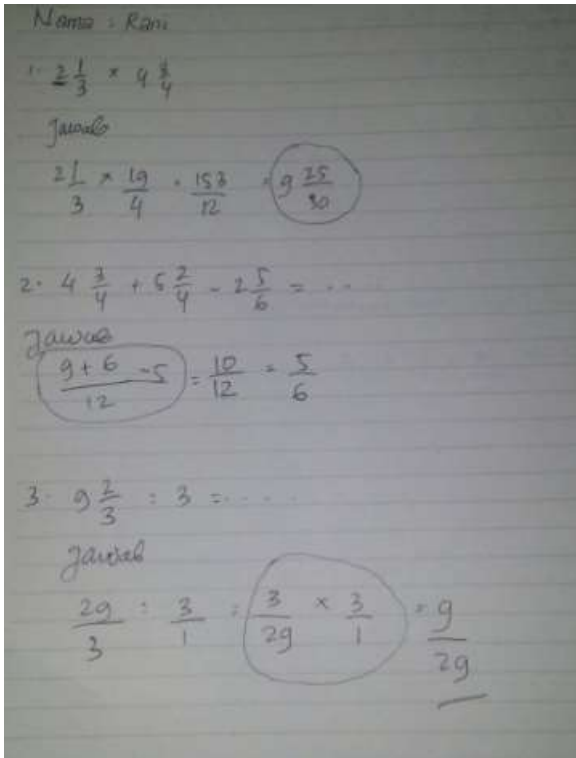 Nama : Rani
1. 2 1/3 × 4 3/4
Jawab
21/3 × 19/4 = 153/12 = 9 25/30
2. 4 3/4 + 5 2/4 - 2 5/6 = ..
Jawab
9+6-5/12 = 10/12 = 5/6
3. 9 2/3 : 3 = .....
Jawab
29/3 : 3/1 = 3/29 × 3/1 = 9/29